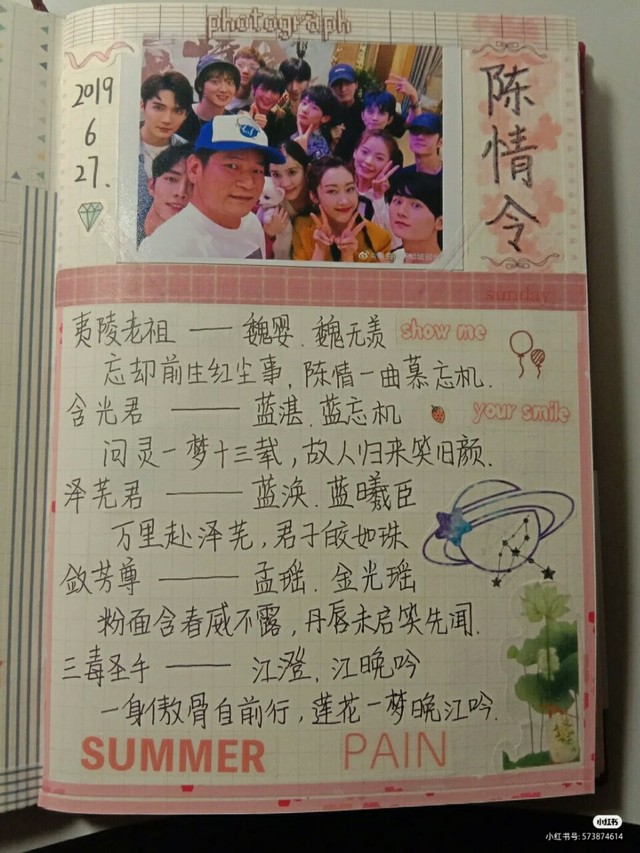 photograph
2019
6
27.
陈情令
sunday
夷陵老祖 —— 魏婴.魏无羡
show me
忘却前生红尘事,陈情一曲慕忘机.
含光君 —— 蓝湛.蓝忘机
your smile
问灵一梦十三载,故人归来笑旧颜.
泽芜君 —— 蓝涣.蓝曦臣
万里赴泽芜,君子皎如珠
敛芳尊 —— 孟瑶.金光瑶
粉面含春威不露,丹唇未启笑先闻.
三毒圣手 —— 江澄.江晚吟
一身傲骨自前行,莲花一梦晚江吟.
SUMMER PAIN
小红书
小红书号: 573874614